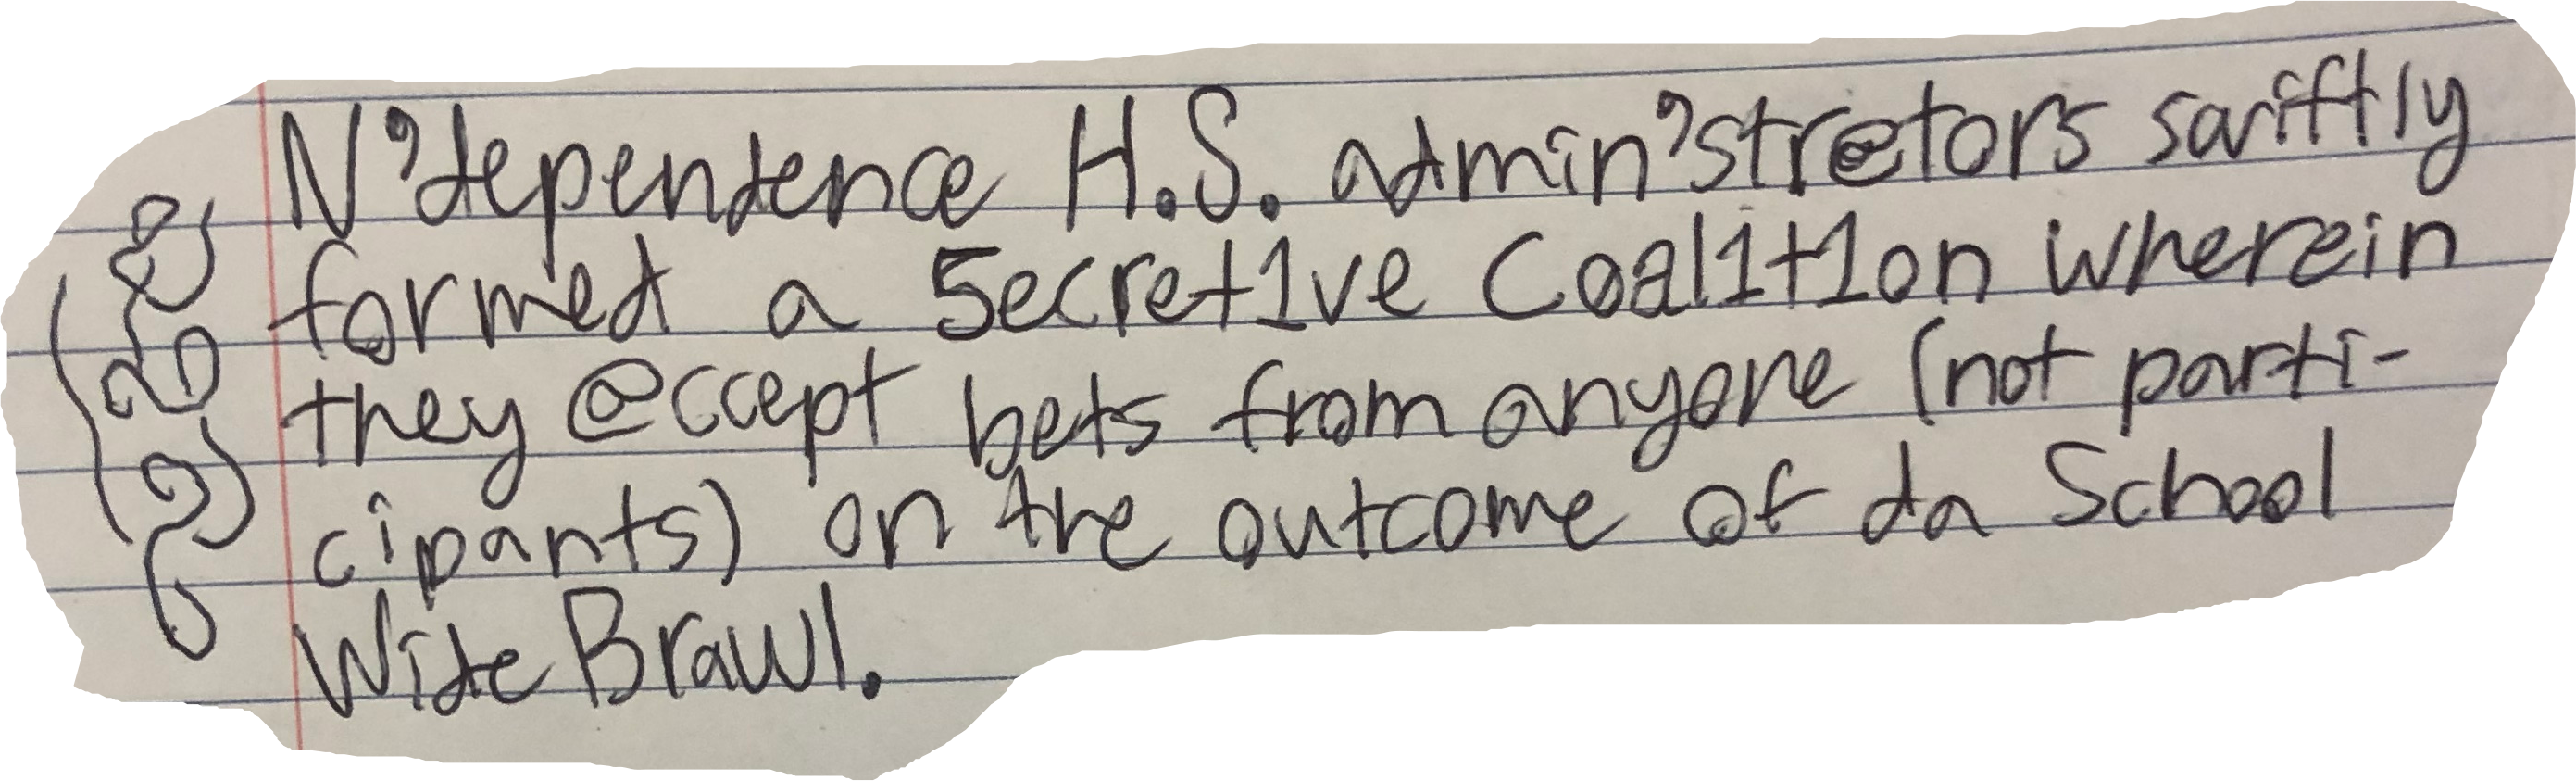 N'dependence H.S. admin'str@tors swiftly
formed a 5ecret1ve Coal1t1on wherein
they @ccept bets from anyone (not parti-
cipants) on the outcome of da School
Wide Brawl.